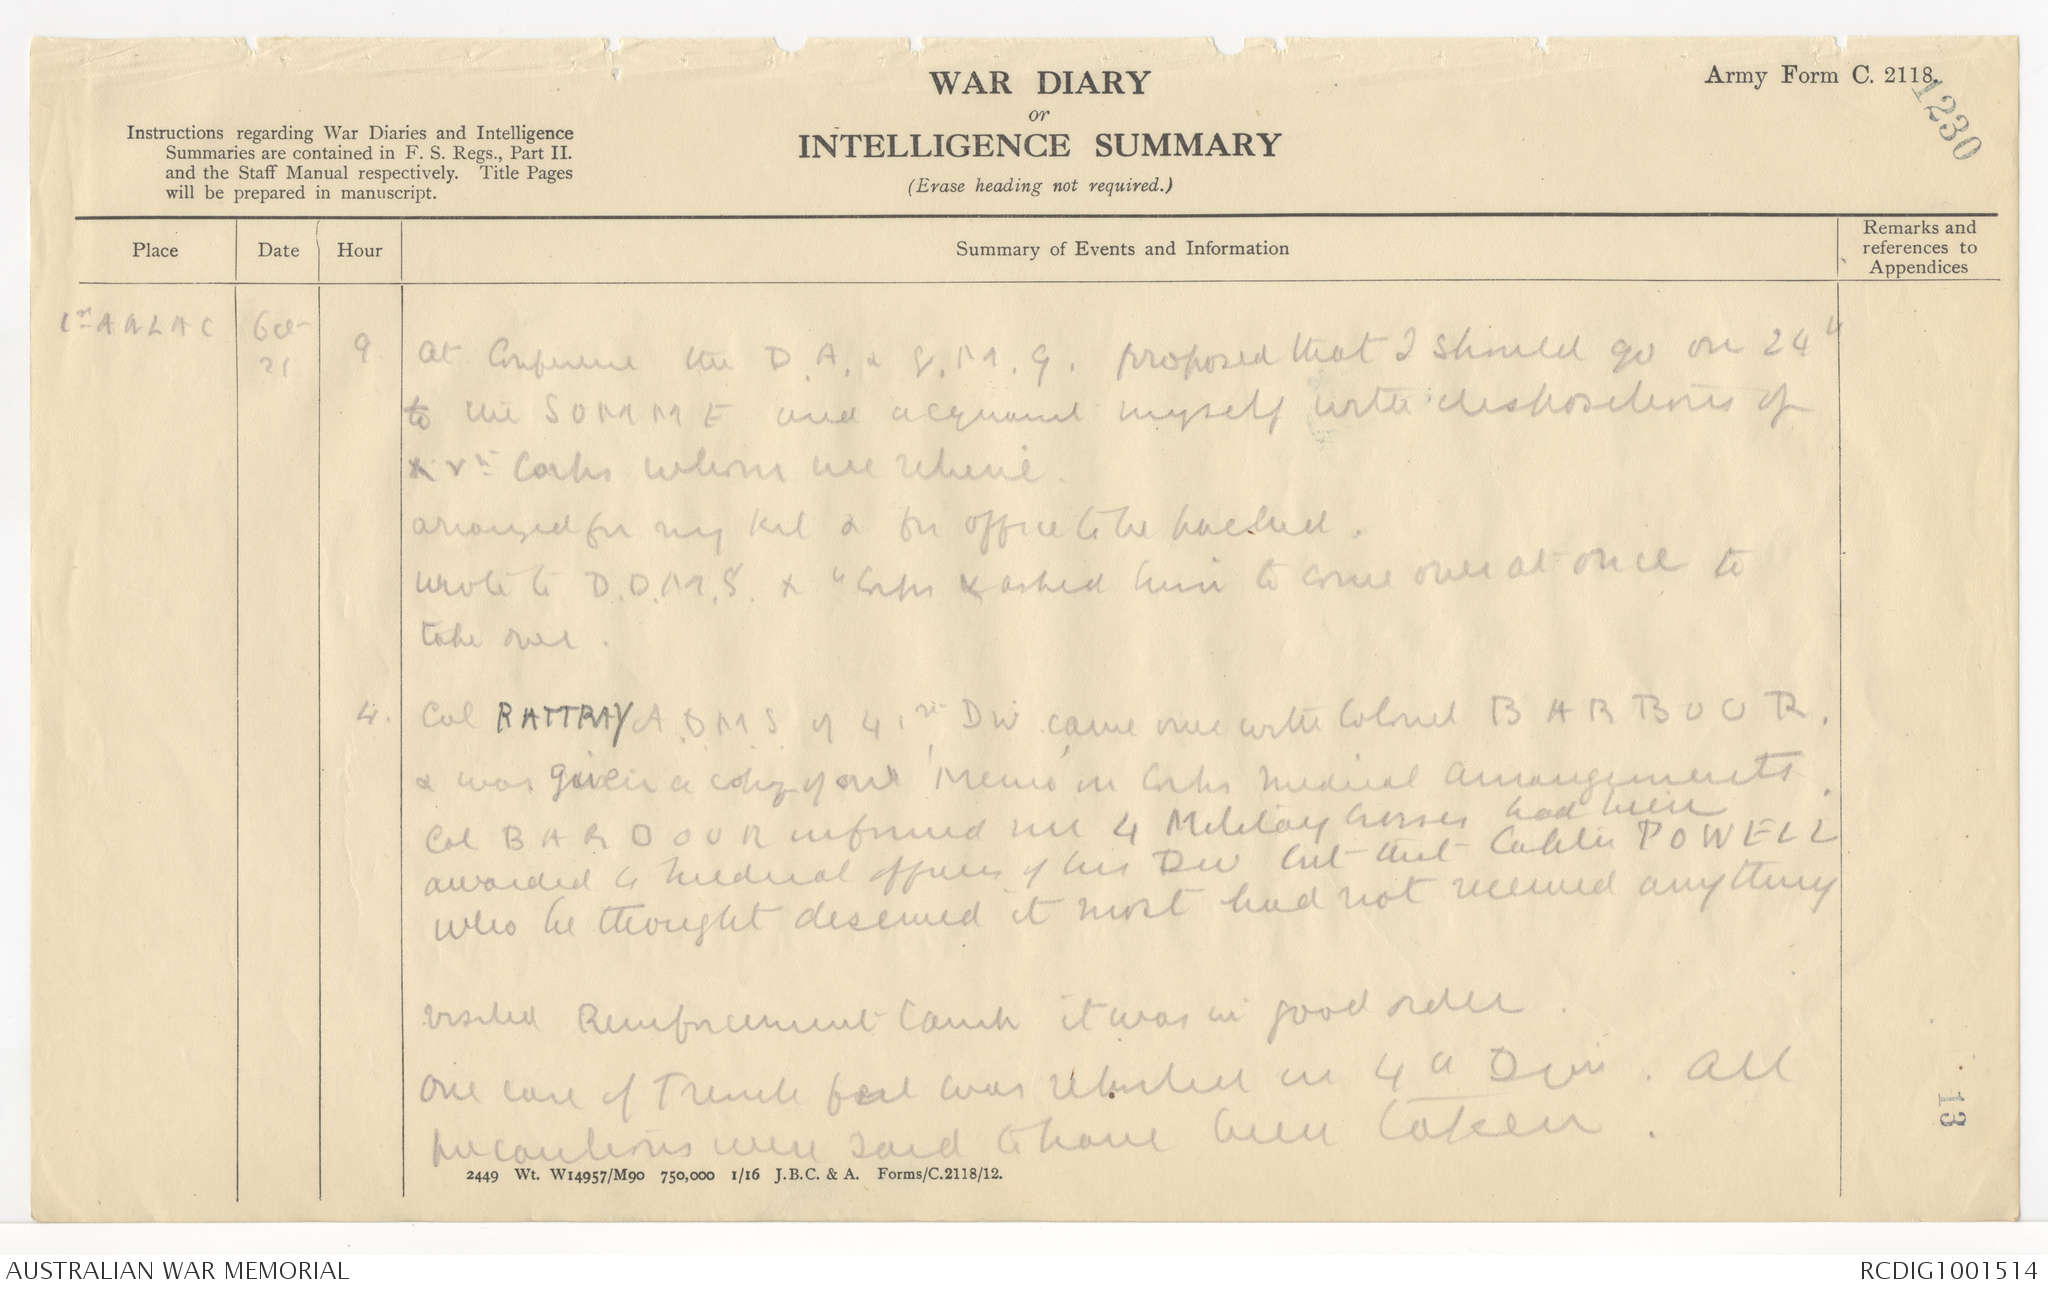 WAR DIARY
or
INTELLIGENCE SUMMARY
(Erase heading not required.)
Army Form C. 2118.
1230
Instructions regarding War Diaries and Intelligence
Summaries are contained in F. S. Regs., Part II.
and the Staff Manual respectively. Title Pages
will be prepared in manuscript.
Place
Date
Hour
Summary of Events and Information
Remarks and
references to
Appendices
1st ANZAC
Oct
21
9
At Conference the D.A. & Q.M.G. proposed that I should go on 24th
to the SOMME and acquaint myself with dispositions of
XVth Corps whom we relieve.
arranged for my kit & for office to be packed.
wrote to D.D.M.S. X th Corps & asked him to come over at once to
take over.
4.
Col RATTRAY A.D.M.S of 41st Div came over with Colonel BARBOUR.
& was given a copy of our 'Memo' on Corps Medical Arrangements.
Col BARBOUR informed me 4 Military Crosses had been
awarded to Medical officers of his Div but that Captn POWELL
who he thought deserved it most had not received anything
visited Reinforcement Camp it was in good order.
One case of Trench feet was reported in 4th Divn. All
precautions were said to have been taken.
13
2449 Wt. W14957/M90 750,000 1/16 J.B.C. & A. Forms/C.2118/12.
AUSTRALIAN WAR MEMORIAL
RCDIG1001514